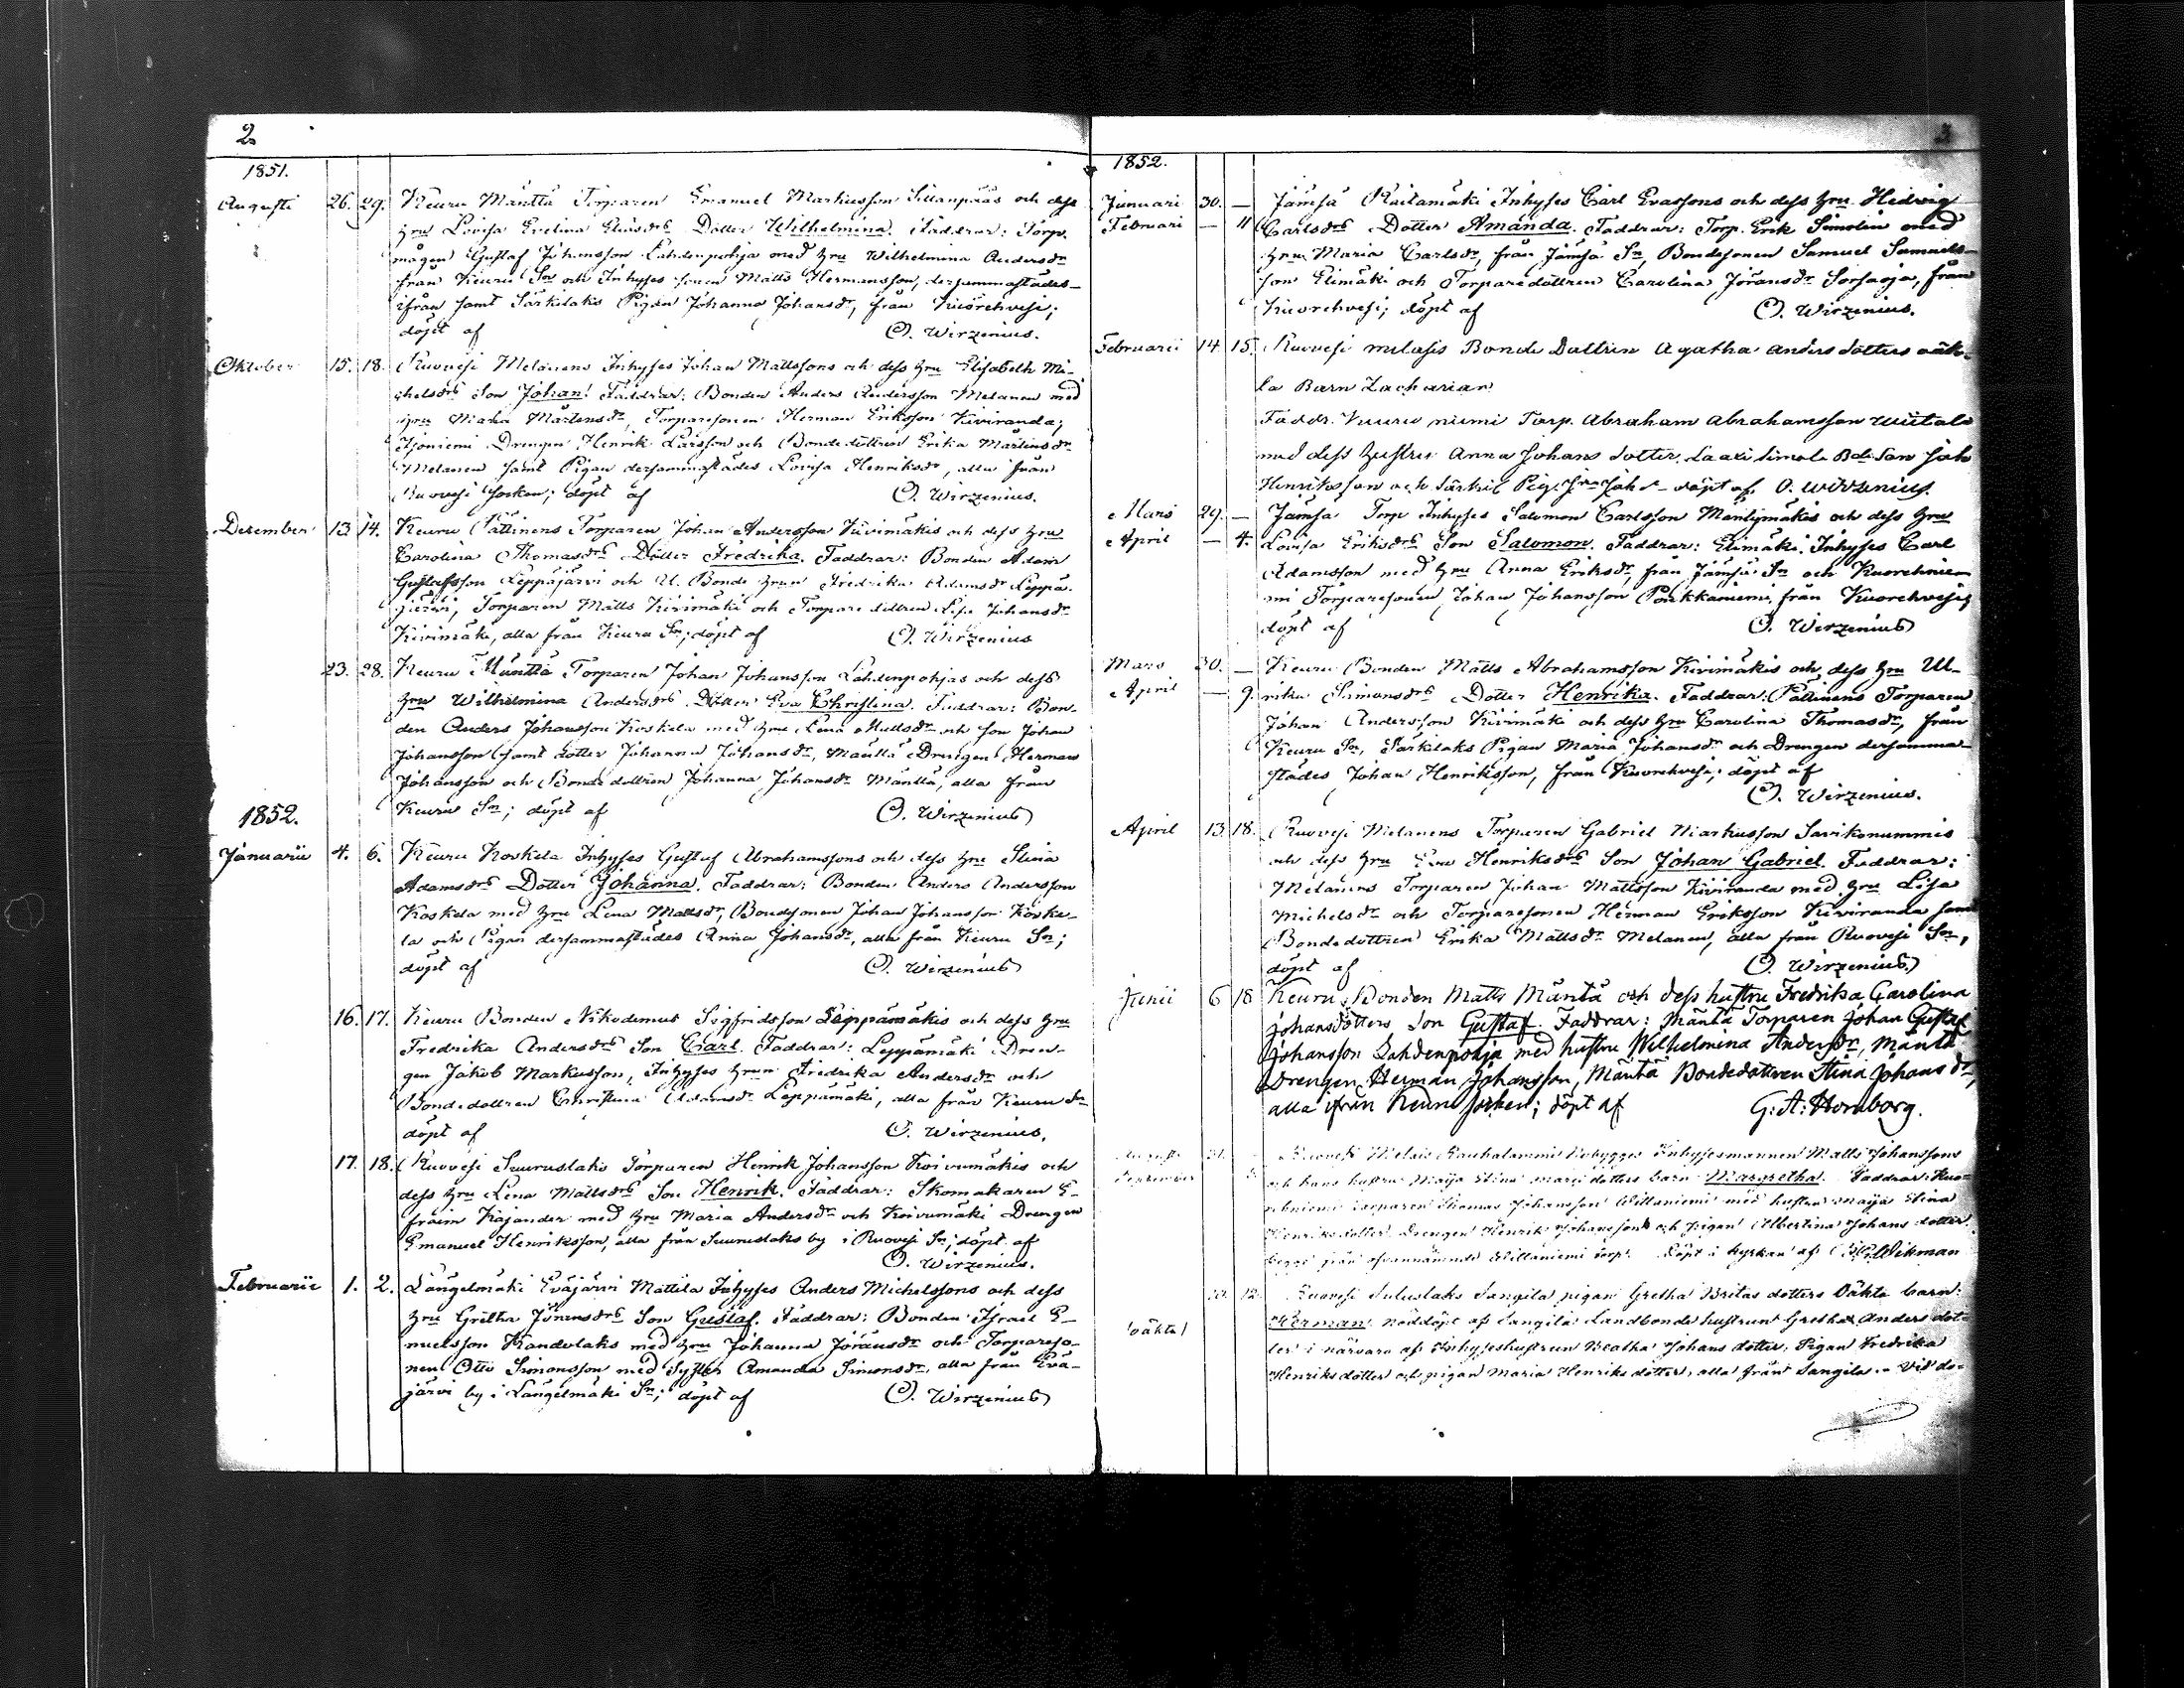 2.
1851.
Augusti 26. 29. Keuru Mänttä Torparen Emanuel Markusson Sillanpääs och dess
hru Lovisa Evelina Eliæds Dotter Wilhelmina. Faddrar: Torp.
mågen Gustaf Johansson Lahdenpohja med hru Wilhelmina Andersdr
från Keuru Sn och Inhyses sonen Matts Hermansson, dersammastädes
ifrån samt Särkilaks Pigan Johanna Johansdr, från Kuorehvesi;
döpt af O. Wirzenius.
Oktober 15. 18. Ruovesi Melanens Inhyses Johan Mattssons och dess hru Elisabeth Mi-
chelsdrs Son Johan. Faddrar: Bonden Anders Andersson Melanen med
hru Maria Mårtensdr, Torparesonen Herman Eriksson Kiviranda;
Drengen Henrik Larsson och Bondedottren Erika Mårtinsdr
Melanen samt Pigan dersammastädes Lovisa Henriksdr, alla från
Ruovesi Socken; döpt af O. Wirzenius.
Desember 13 14. Keuru Pättinens Torparen Johan Andersson Kivimäkis och dess hru
Carolina Thomasdrs Dotter Fredrika. Faddrar: Bonden Adam
Gustafsson Leppäjärvi och U. Bonde hrun Fredrika Adamsdr Leppä-
järvi, Torparen Matts Kivimäki och Torpare dottren Lisa Johansdr
Kivimäki, alla från Keuru Sn; döpt af O. Wirzenius
23. 28. Keuru Mänttä Torparen Johan Johansson Lahdenpohjas och dess
hru Wilhelmina Andersdrs Dotter Eva Christina. Faddrar: Bon-
den Anders Johansson Koskela med hru Lena Mattsdr och son Johan
Johansson samt dotter Johanna Johansdr, Mänttä Drengen Herman
Johansson och Bondedottren Johanna Johansdr Mänttä, alla från
Keuru Sn; döpt af O. Wirzenius
1852.
Januarii 4. 6. Keuru Koskela Inhyses Gustaf Abrahamssons och dess hru Stina
Adamsdrs Dotter Johanna. Faddrar: Bonden Anders Andersson
Koskela med hru Lena Mattsdr, Bondsonen Johan Johansson Koske-
la och Pigan dersammastädes Anna Johansdr, alla från Keuru Sn;
döpt af O. Wirzenius
16. 17. Keuru Bonden Nikodemus Sigfridsson Leppämäkis och dess hru
Fredrika Andersdrs Son Carl. Faddrar: Leppämäki Dren-
gen Jakob Markusson, Inhyses hrun Fredrika Andersdr och
Bondedottren Christina Adamsdr Leppämäki, alla från Keuru Sn
döpt af O. Wirzenius.
17. 18. Ruovesi Suuruslaks Torparen Henrik Johansson Koivumäkis och
dess hru Lena Mattsdrs Son Henrik. Faddrar: Skomakaren E-
fraim Kajander med hru Maria Andersdr och Koivumäki Drengen
Emanuel Henriksson, alla från Suuruslaks by i Ruovesi Sn; döpt af
O. Wirzenius.
Februarii 1. 2. Längelmäki Eväjärvi Mattila Inhyses Anders Michelssons och dess
hru Gretha Jöransdrs Son Gustaf. Faddrar: Bonden Israel E-
nuelsson Kandolaks med hru Johanna Jöransdr och Torpareso-
nen Otto Simonsson med Syster Amanda Simonsdr, alla från Evä-
järvi by i Längelmäki Sn; döpt af O. Wirzenius
3
1852.
Januari 30. — Jämsä Raitamäki Inhyses Carl Evassons och dess hru Hedvig
Februari — 11 Carlsdrs Dotter Amanda. Faddrar: Torp. Erik Simolin med
hru Maria Carlsdr, från Jämsä Sn, Bondesonen Samuel Samuels-
son Elimäki och Torparedottren Carolina Jöransdr Sorsaoja, från
Kuorehvesi; döpt af O. Wirzenius.
Februarii 14 15. Ruovesi melasis Bonde Dottren Agatha anders dotters oäk-
ta Barn Zacharian
Faddr. Keuru niemi Torp. Abraham Abrahamsson
med dess hustru Anna Johans dotter. Bde Son Joh
Henriksson och Särkil Pig. döpt af O. wirzenius.
Mars 29. — Jämsä Torp Inhyses Salomon Carlsson Mäntymäkis och dess hru
April — 4. Lovisa Eriksdrs Son Salomon. Faddrar: Elimäki Inhyses Carl
Adamsson med hru Anna Eriksdr, från Jämsä Sn och Kuorehnie-
mi Torparesonen Johan Johansson Poikkäniemi, från Kuorehvesi;
döpt af O. Wirzenius
Mars 30. — Keuru Bonden Matts Abrahamsson Kivimäkis och dess hru Ul-
April — 9. rika Simonsdrs Dotter Henrika. Faddrar: Pättinens Torparen
Johan Andersson Kivimäki och dess hru Carolina Thomasdr, från
Keuru Sn, Särkilaks Pigan Maria Johansdr och Drengen dersamma-
städes Johan Henriksson, från Kuorehvesi; döpt af
O. Wirzenius.
April 13 18. Ruovesi Melanens Torparen Gabriel Markusson Savikonummis
och dess hru Eva Henriksdrs Son Johan Gabriel. Faddrar:
Melanens Torparen Johan Mattsson Kiviranda med hru Lisa
Michelsdr och Torparesonen Herman Eriksson Kiviranda samt
Bondedottren Erika Mattsdr Melanen, alla från Ruovesi Sn,
döpt af O. Wirzenius.
Junii 6 18 Keuru, Bonden Matts Mänttä och dess hustru Fredrika Carolina
Johansdotters Son Gustaf. Faddrar: Mänttä Torparen Johan Gustaf
Johansson Lahdenpohja med hustru Wilhelmina Andersdr, Mänttä
Drengen Herman Johansson, Mänttä Bondedottren Stina Johansdr,
alla ifrån Keuru socken; döpt af G: A: Homborg.
Augusti 31. Ruovesi Melais Rauhalammi Nybygges Inhysesmannen Matts Johanssons
September och hans hustru Maija Stina dotters barn Margretha. Faddrar: Kuo-
rehniemi torparen Thomas Johansson Willaniemi med hustru Maija Stina
Henriksdotter. Drengen Henrik Johansson och pigan Albertina Johans dotter
begge från ofvannämnde Willaniemi torp. Döpt i kyrkan af Wikman
12. Ruovesi Suluslaks Sangila pigan Gretha Britas dotters Oäkta barn:
(oäkta) Herman, nöddöpt af Sangila Landbonde hustrun Gretha Anders dot-
ter i närvaro af Inhyseshustrun Beatha Johans dotter, Pigan Fredrika
Henriks dotter och pigan Maria Henriks dotter, alla från Sangila. Vid do-